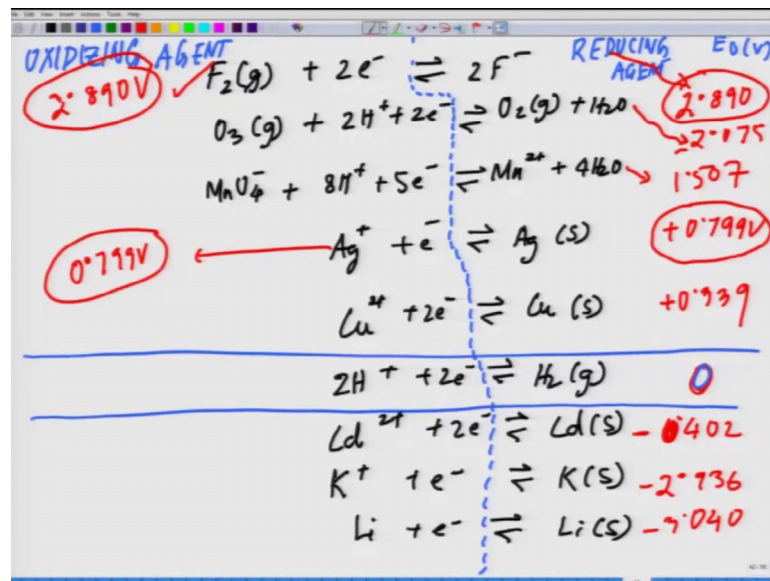 OXIDIZING AGENT REDUCING AGENT E0(V)
2.890V F2(g) + 2e- ⇌ 2F- 2.890
O3(g) + 2H+ + 2e- ⇌ O2(g) + H2O 2.075
MnO4- + 8H+ + 5e- ⇌ Mn2+ + 4H2O 1.507
0.799V Ag+ + e- ⇌ Ag (s) +0.799V
Cu2+ + 2e- ⇌ Cu (s) +0.339
2H+ + 2e- ⇌ H2(g) 0
Cd2+ + 2e- ⇌ Cd(s) -0.402
K+ + e- ⇌ K(s) -2.936
Li + e- ⇌ Li(s) -3.040